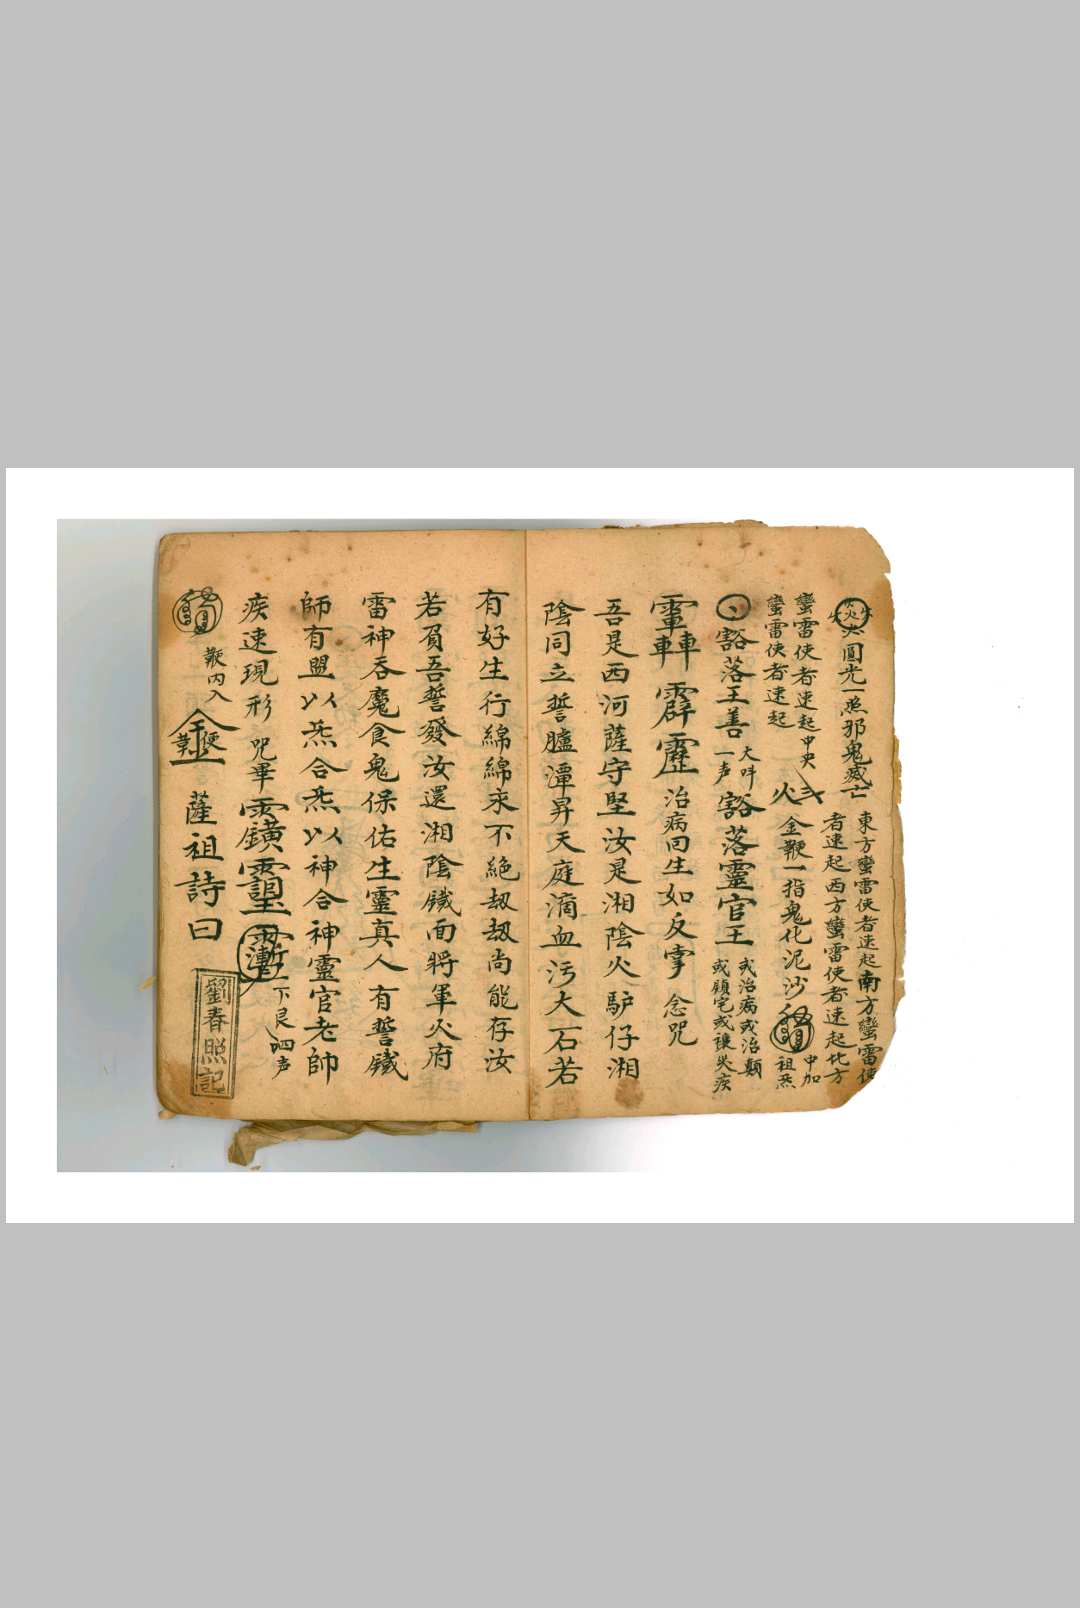 圓光一照邪鬼滅亡
東方蠻雷使者速起南方蠻雷使
者速起西方蠻雷使者速起北方
蠻雷使者速起中央
蠻雷使者速起
火
金鞭一指鬼化泥沙
中加
祖炁
豁落王善
大吽
一声
豁落靈官王
或治病或治顛
或願宅或禳災疾
轟霹靂治病回生如反掌 念咒
吾是西河薩守堅汝是湘陰火馿仔湘
陰同立誓臚潭昇天庭滴血污大石若
有好生行綿綿永不絕劫劫尚能存汝
若負吾誓發汝還湘陰鐵面將軍火府
雷神吞魔食鬼保佑生靈真人有誓鐵
師有盟以炁合炁以神合神靈官老師
疾速現形 咒畢
下艮
四声
鞭内入
薩祖詩曰
劉春照記